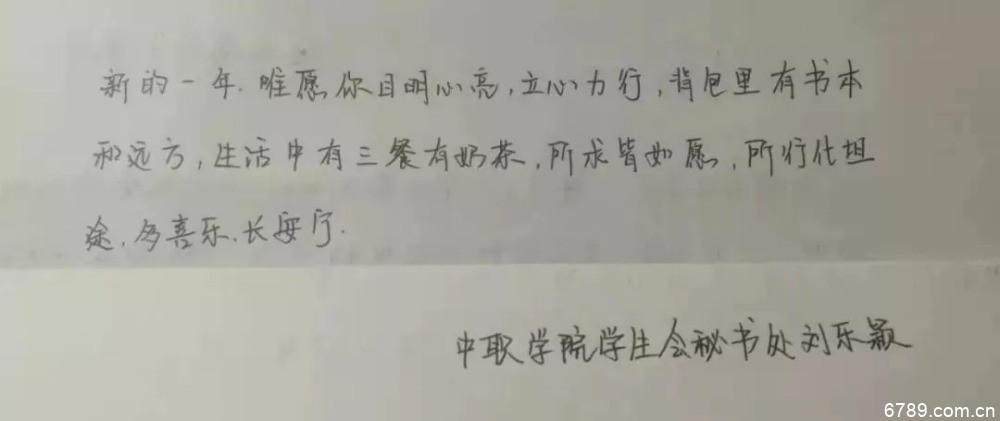 新的一年.唯愿你目明心亮,立心力行,背包里有书本
和远方,生活中有三餐有奶茶,所求皆如愿,所行化坦
途.多喜乐.长安宁.
中职学院学生会秘书处刘乐颖
6789.com.cn